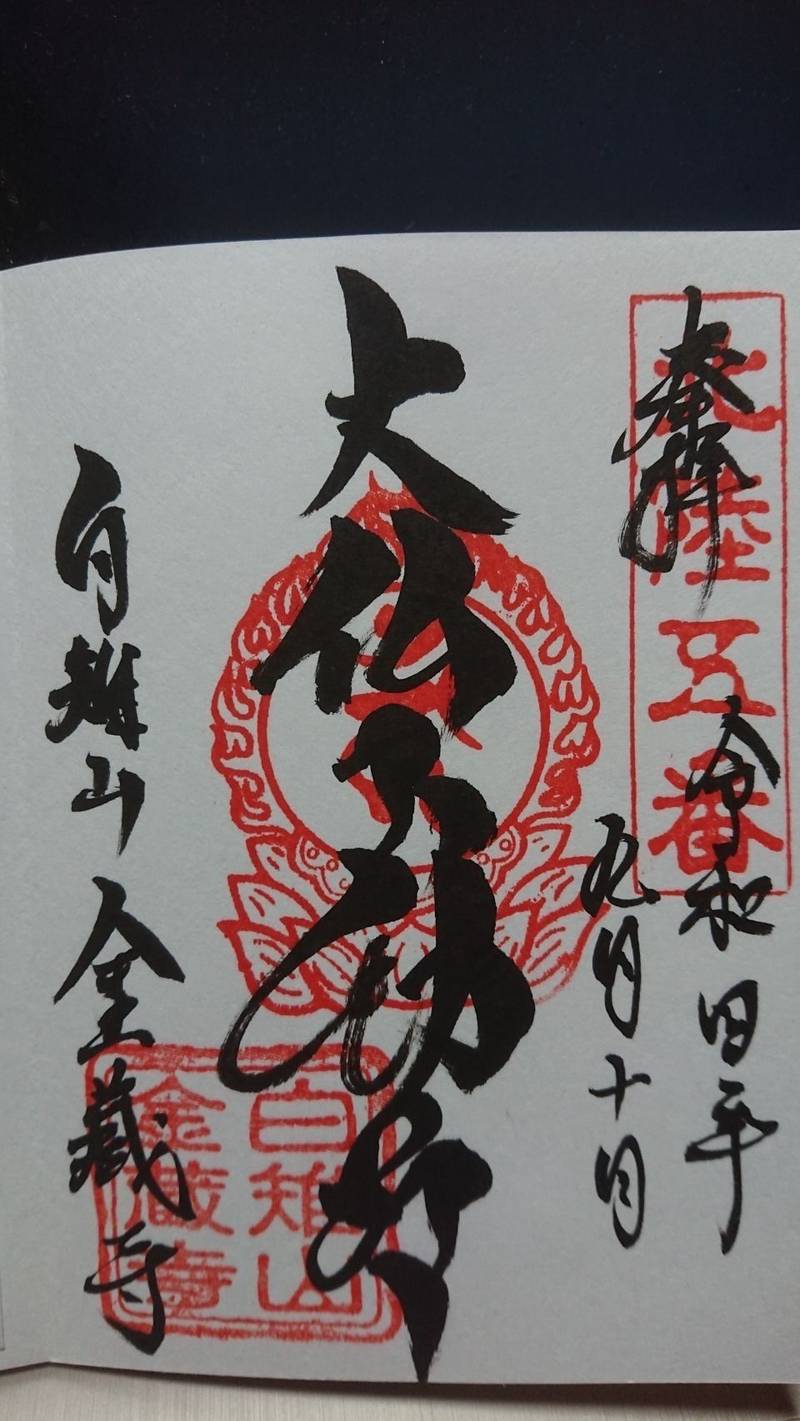 奉拝
北陸五番
令和四年
九月十日
大仏不動尊
白雉山 金蔵寺
白雉山
金蔵寺